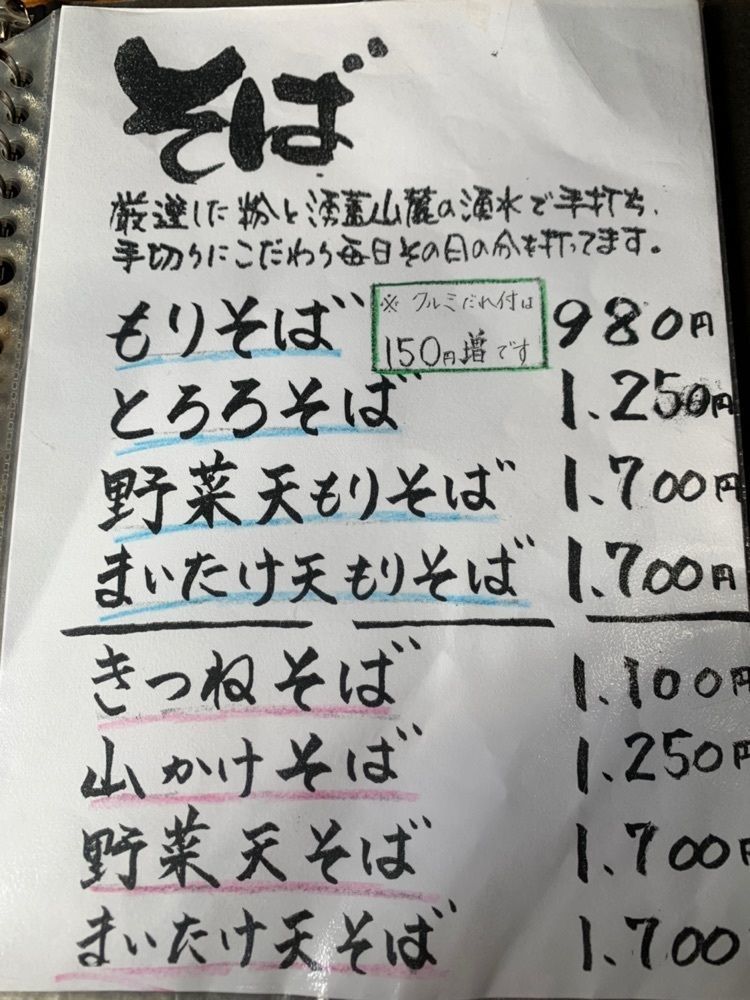 そば
厳選した粉と湧蓋山麓の湧水で手打ち、
手切りにこだわり毎日その日の分を打ってます。
もりそば 980円
※クルミだれ付は
150円増です
とろろそば 1.250円
野菜天もりそば 1.700円
まいたけ天もりそば 1.700円
きつねそば 1.100円
山かけそば 1.250円
野菜天そば 1.700円
まいたけ天そば 1.700